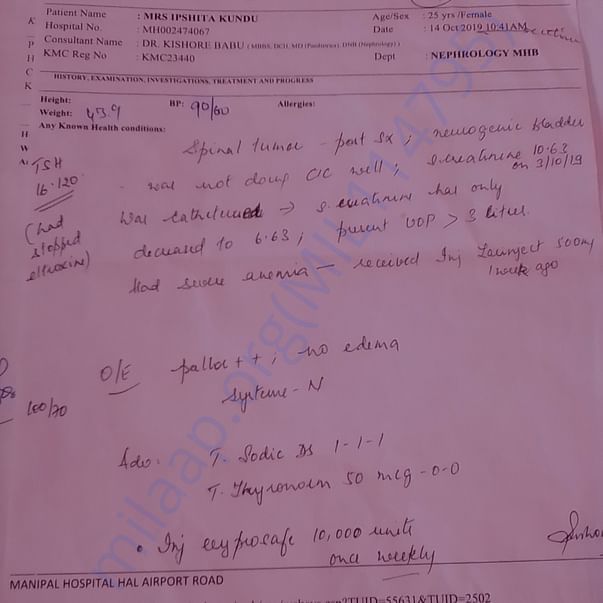 Patient Name : MRS IPSHITA KUNDU Age/Sex : 25 yrs /Female
Hospital No. : MH002474067 Date : 14 Oct 2019 10:41AM
Consultant Name : DR. KISHORE BABU ( MBBS, DCH, MD (Paediatrics), DNB (Nephrology) )
KMC Reg No : KMC23440 Dept : NEPHROLOGY MHB
HISTORY, EXAMINATION, INVESTIGATIONS, TREATMENT AND PROGRESS
Height: BP: 90/60 Allergies:
Weight: 43.9
Any Known Health conditions:
Spinal tumor - post Sx ; neurogenic bladder
TSH
16.120
(had
stopped
eltroxine)
- was not doing CIC well ; s.creatinine 10.63
on 3/10/19
was catheterised → s.creatinine has only
decreased to 6.63 ; present UOP > 3 litres.
Had severe anemia - received Inj 500mg
1 week ago
O/E pallor ++ ; no edema
100/70
systemic - N
Adv. T. Sodic DS 1-1-1
T. Thyronorm 50 mcg -0-0
• Inj 10,000 units
once weekly
MANIPAL HOSPITAL HAL AIRPORT ROAD
?TUID=55631&TUID=2502
milaap.org(MIL1147957)